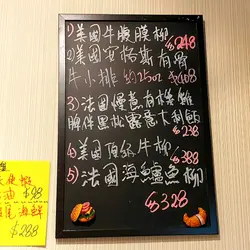 1)美國牛膜膜柳
$248
2)美國安格斯有骨
牛小排 約25oz $408
3)法國慢煮有機雞
髀伴黑松露意大利飯
$238
4)美國頂級牛柳
$388
5)法國海鱸魚柳
$328
$98
海鮮
$288